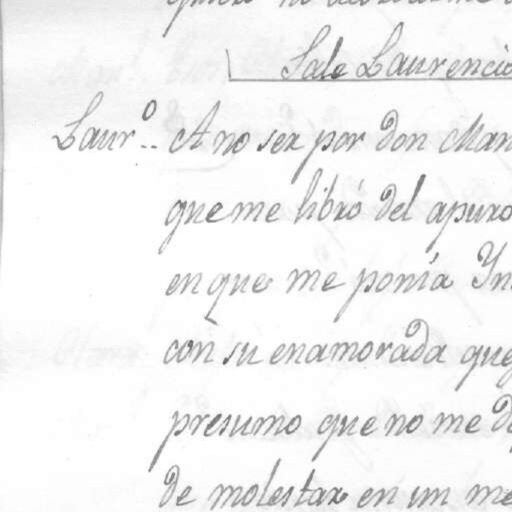 Sale Laurencio
Laur.º.. A no ser por don Man
que me libró del apuro
en que me ponía Yn
con su enamorada que
presumo que no me de
de molestar en un me